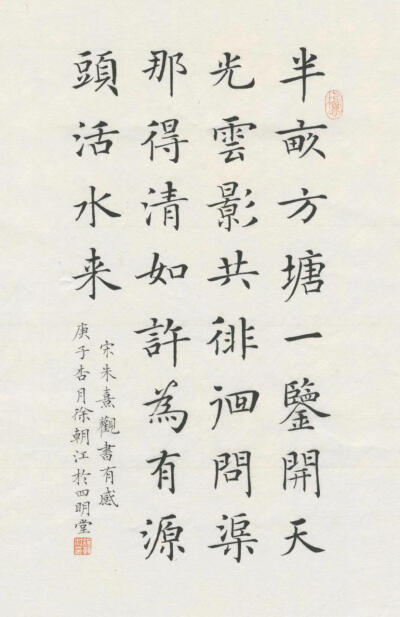 半畝方塘一鑒開天
光雲影共徘徊問渠
那得清如許為有源
頭活水来
宋朱熹觀書有感
庚子杏月徐朝江於四明堂